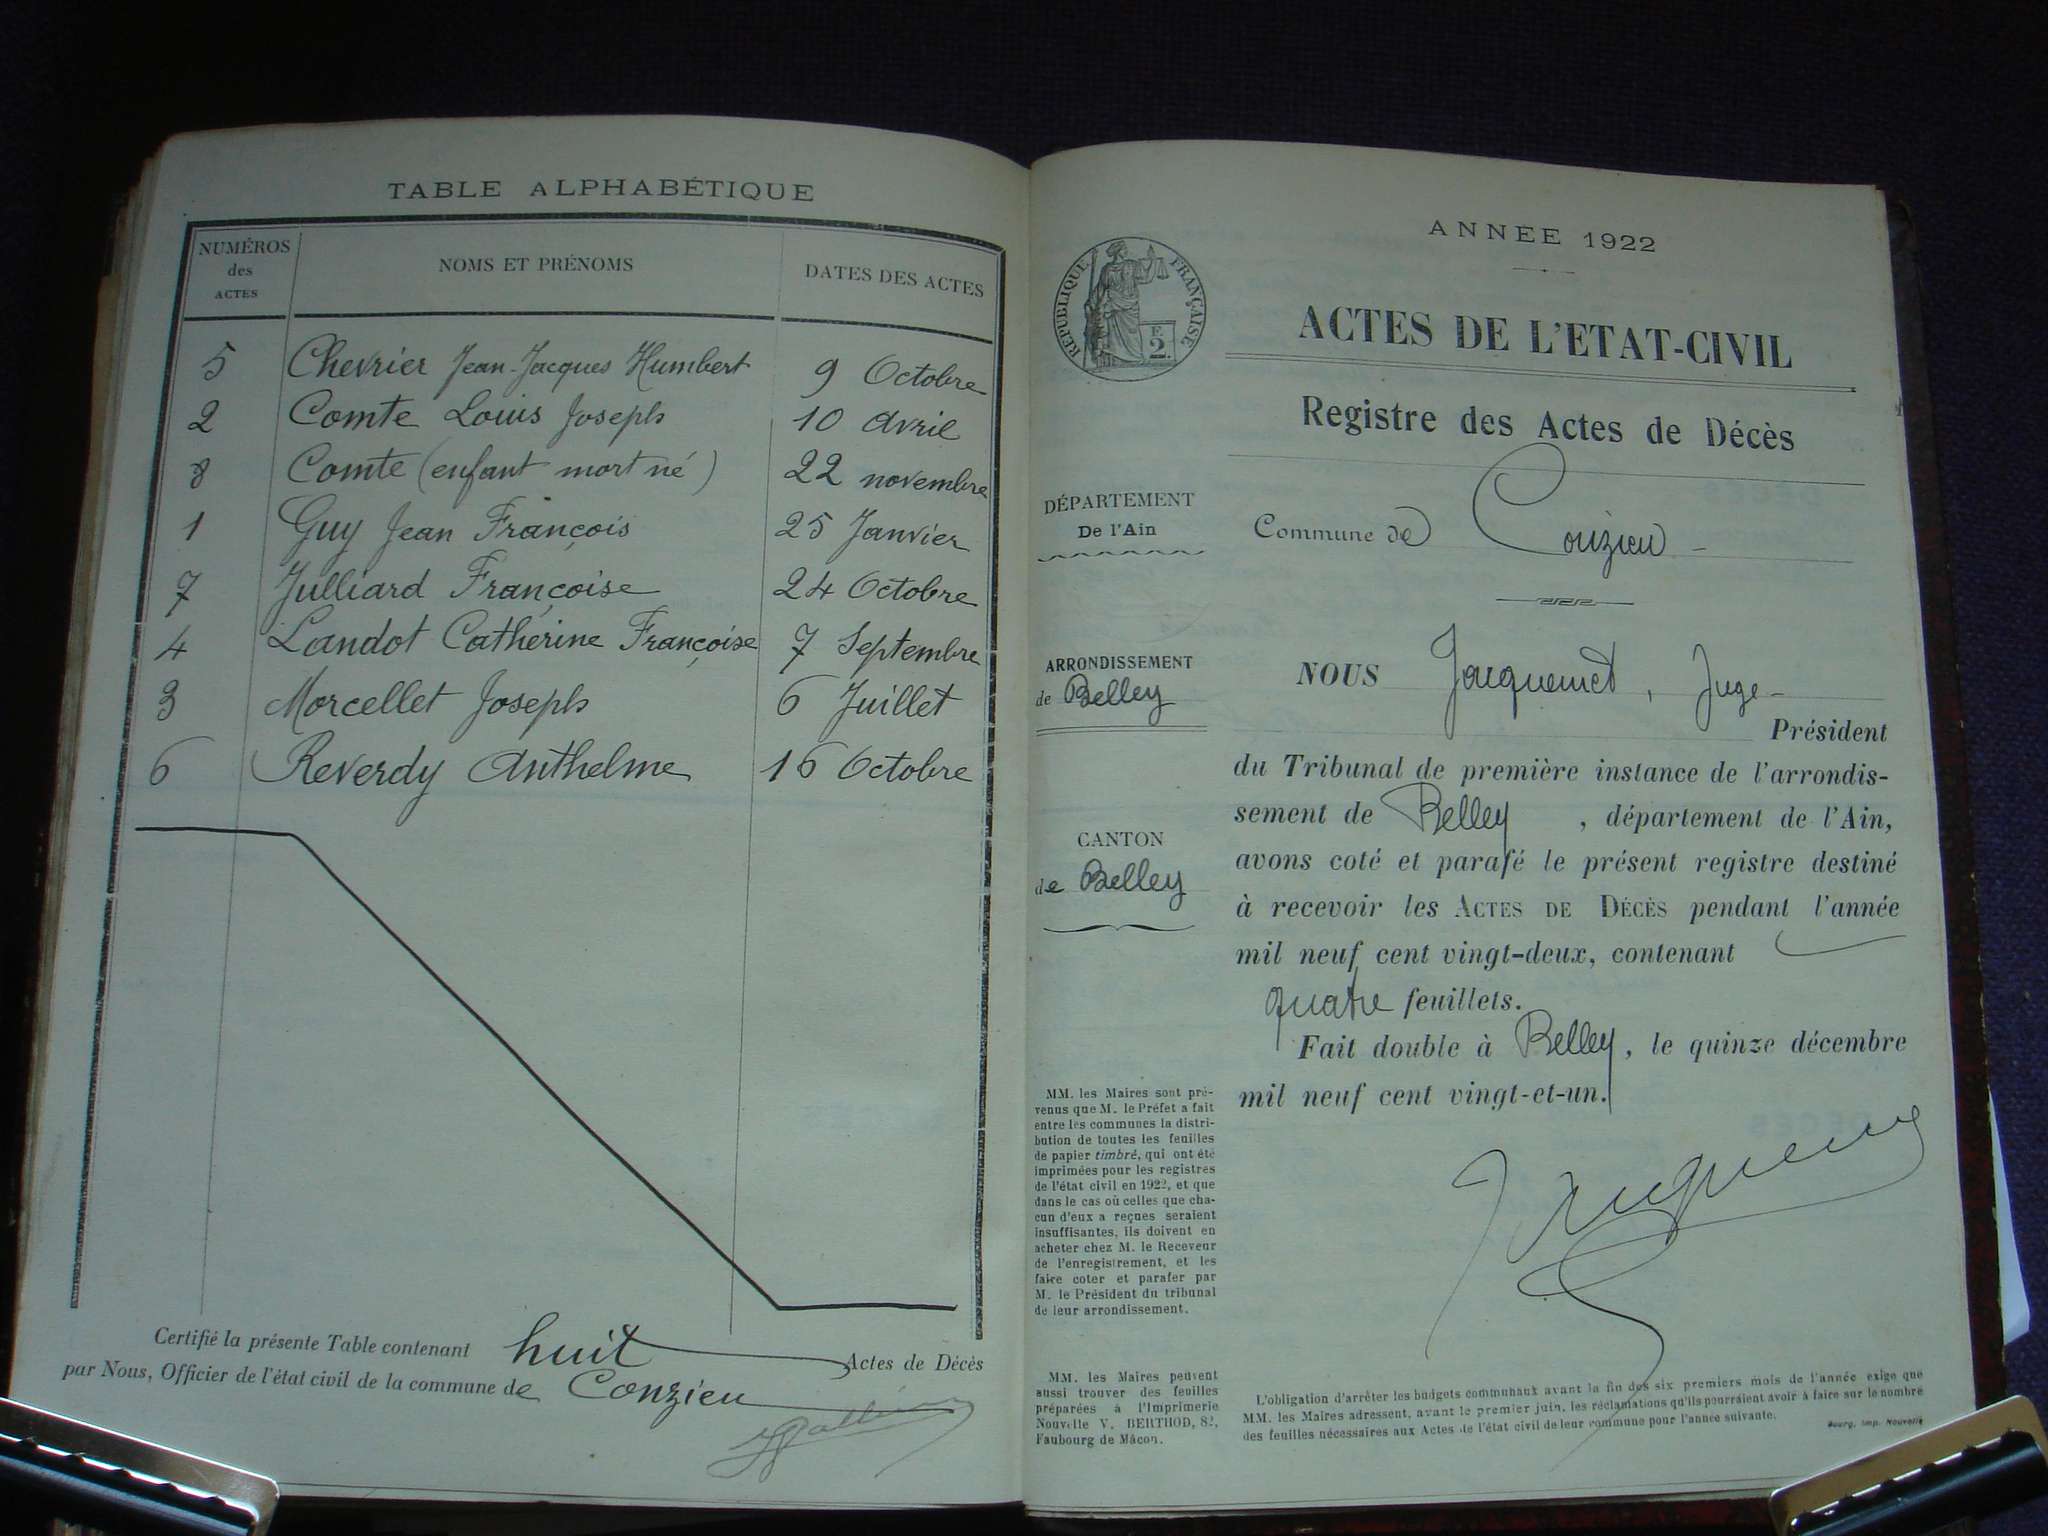 TABLE ALPHABÉTIQUE
NUMÉROS des ACTES NOMS ET PRÉNOMS DATES DES ACTES
5 Chevrier Jean-Jacques Humbert 9 Octobre
2 Comte Louis Joseph 10 avril
8 Comte (enfant mort né) 22 novembre
1 Guy Jean François 25 Janvier
7 Julliard Françoise 24 Octobre
4 Landot Cathérine Françoise 7 Septembre
3 Morcellet Joseph 6 Juillet
6 Reverdy Anthelme 16 Octobre
Certifié la présente Table contenant huit Actes de Décès
par Nous, Officier de l'état civil de la commune de Conzieu
ANNEE 1922
RÉPUBLIQUE FRANÇAISE
F.
2.
ACTES DE L'ETAT-CIVIL
Registre des Actes de Décès
DÉPARTEMENT
De l'Ain
Commune de Conzieu
ARRONDISSEMENT
de Belley
CANTON
de Belley
NOUS Jacquemet, Juge
Président
du Tribunal de première instance de l'arrondis-
sement de Belley, département de l'Ain,
avons coté et parafé le présent registre destiné
à recevoir les ACTES DE DÉCÈS pendant l'année
mil neuf cent vingt-deux, contenant
quatre feuillets.
Fait double à Belley, le quinze décembre
mil neuf cent vingt-et-un.
MM. les Maires sont pré-
venus que M. le Préfet a fait
entre les communes la distri-
bution de toutes les feuilles
de papier timbré, qui ont été
imprimées pour les registres
de l'état civil en 1922, et que
dans le cas où celles que cha-
cun d'eux a reçues seraient
insuffisantes, ils doivent en
acheter chez M. le Receveur
de l'enregistrement, et les
faire coter et parafer par
M. le Président du tribunal
de leur arrondissement.
MM. les Maires peuvent
aussi trouver des feuilles
préparées à l'Imprimerie
Nouvelle V. BERTHOD, 82,
Faubourg de Mâcon.
L'obligation d'arrêter les budgets communaux avant la fin des six premiers mois de l'année exige que
MM. les Maires adressent, avant le premier juin, les réclamations qu'ils pourraient avoir à faire sur le nombre
des feuilles nécessaires aux Actes de l'état civil de leur commune pour l'année suivante.
Bourg, Imp. Nouvelle